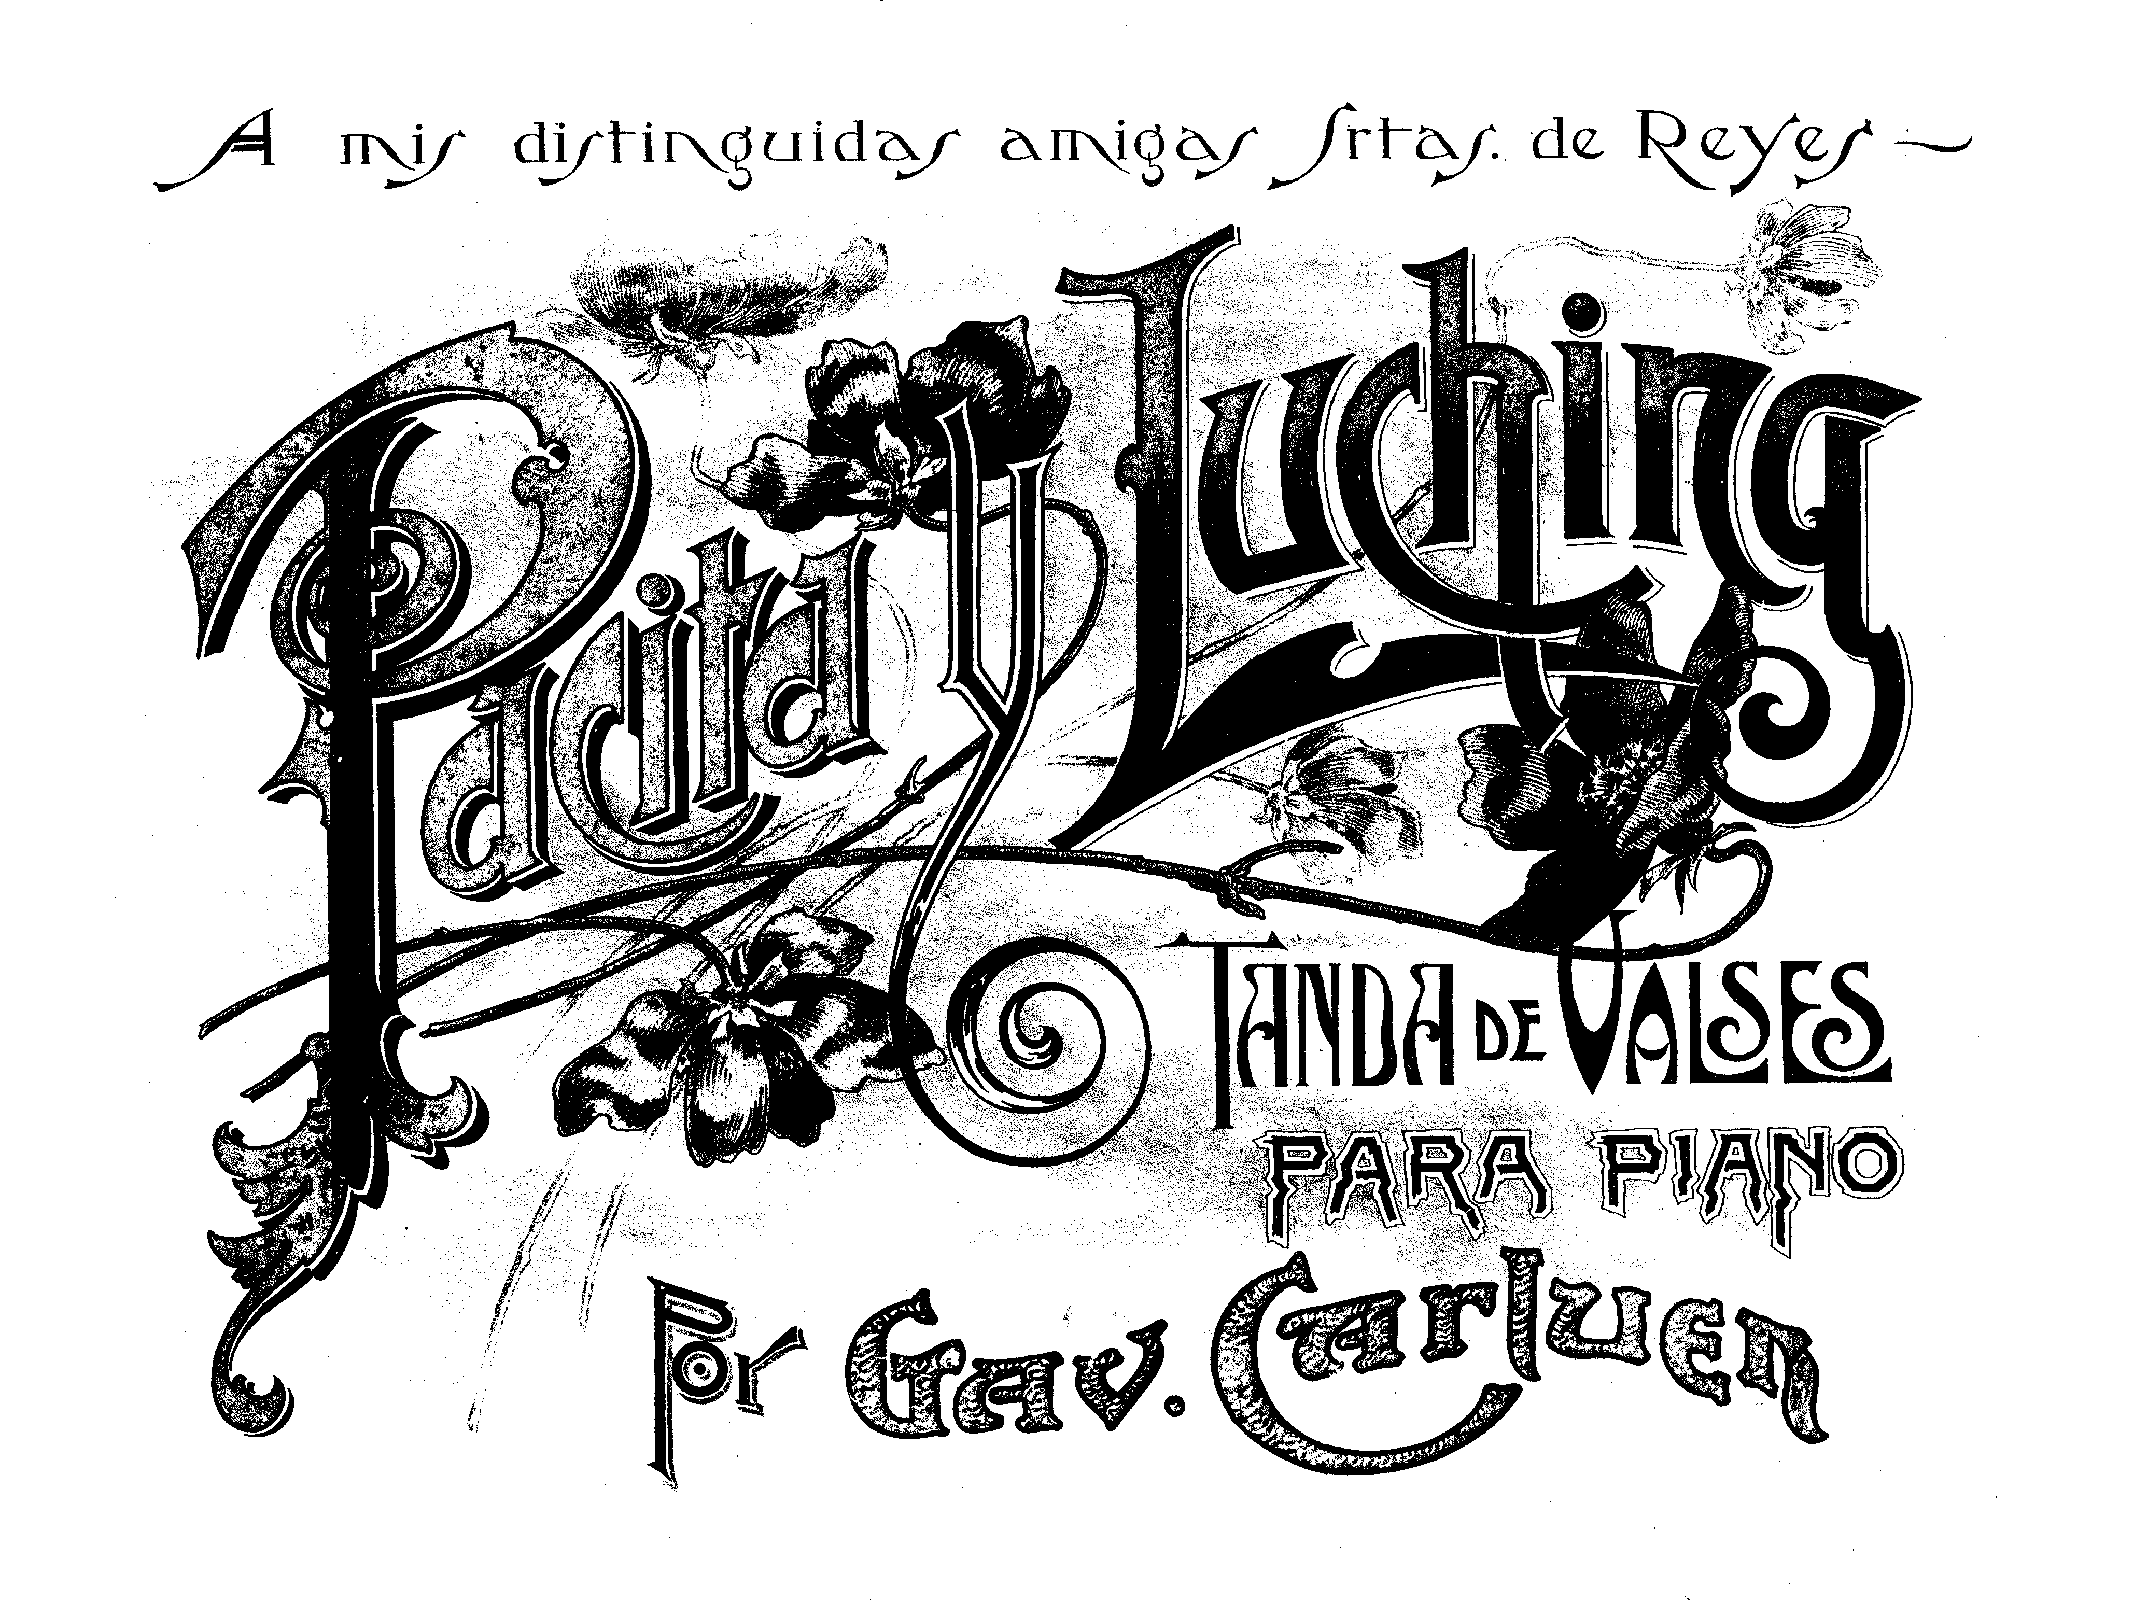 A mis distinguidas amigas Srtas. de Reyes
Pacita y Luching
TANDA DE VALSES
PARA PIANO
Por Gav. Carluen